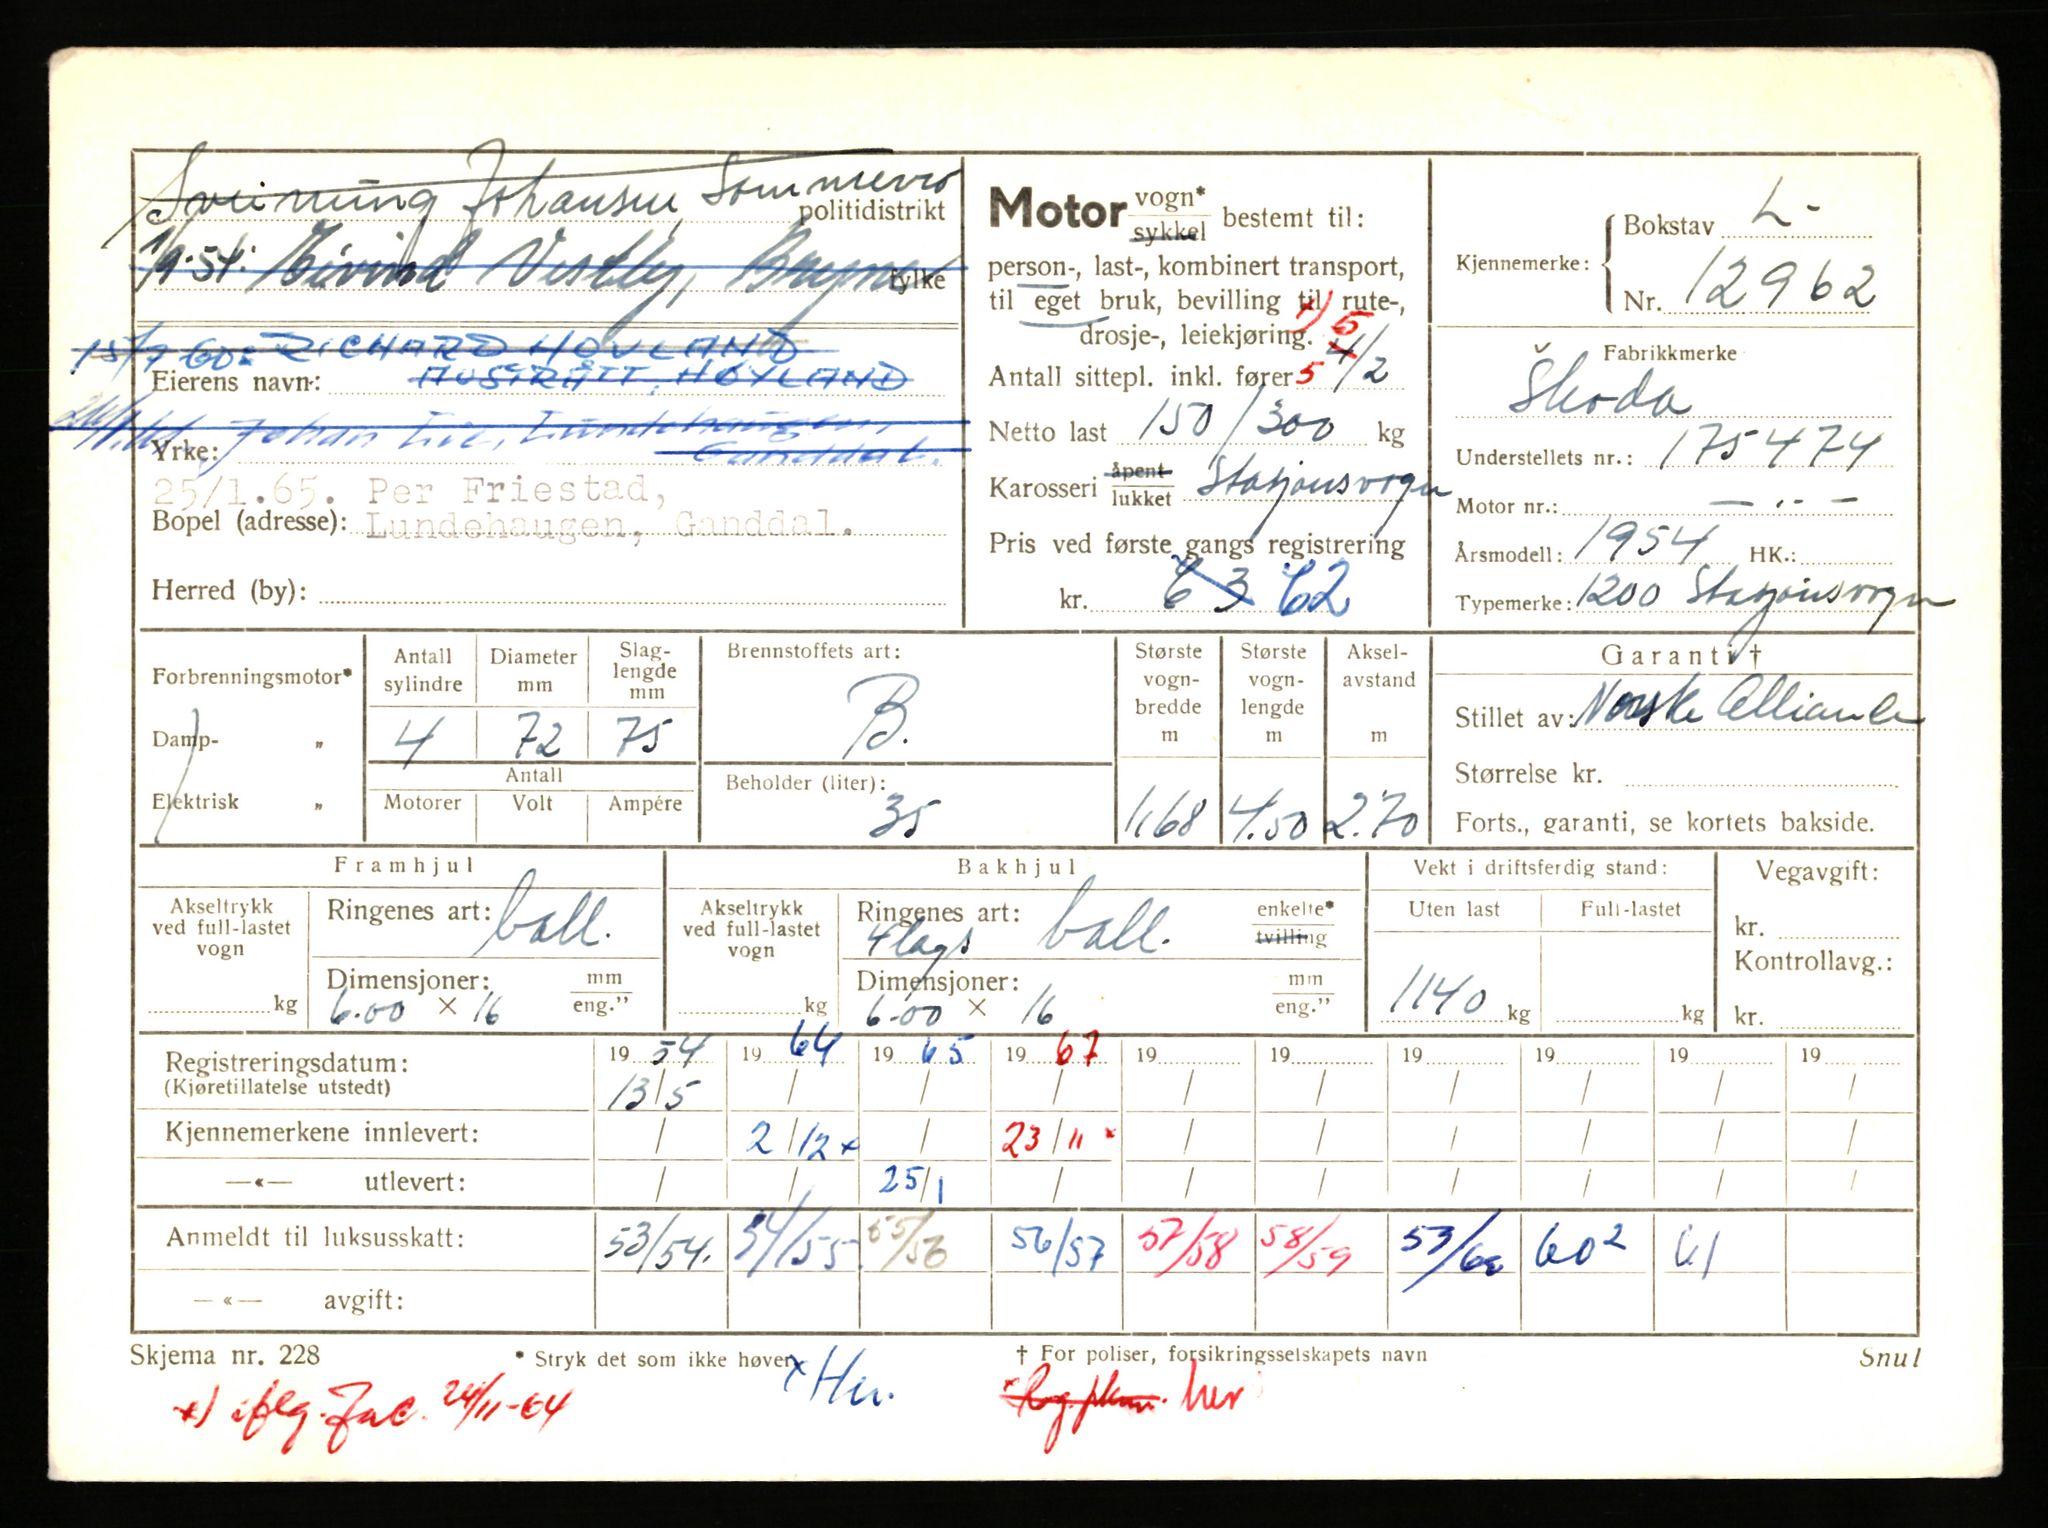 Sveinung Johansen, Sømmevei
politidistrikt
1/9-54: Eivind Vestly, Bryne
fylke
15/9 60: RICHARD HOVLAND
AUSTRÅTT, HØYLAND
Eierens navn:
Johan Lie, Lundehaugen,
Yrke: Ganddal.
25/1.65. Per Friestad,
Bopel (adresse): Lundehaugen, Ganddal.
Herred (by):
Motor vogn* sykkel bestemt til:
person-, last-, kombinert transport,
til eget bruk, bevilling til rute-,
drosje-, leiekjøring. *) 5
Antall sittepl. inkl. fører 5 4/2
Netto last 150/300 kg
Karosseri åpent lukket Stasjonsvogn
Pris ved første gangs registrering
kr. 63 62
Kjennemerke: Bokstav L-
Nr. 12962
Fabrikkmerke
Škoda
Understellets nr.: 175474
Motor nr.: — „ —
Årsmodell: 1954 HK.:
Typemerke: 1200 Stasjonsvogn
Forbrenningsmotor*
Damp- „
Elektrisk „
Antall sylindre
Diameter mm
Slag-lengde mm
4 72 75
Antall
Motorer Volt Ampére
Brennstoffets art:
B.
Beholder (liter):
35
Største vogn-bredde m
1,68
Største vogn-lengde m
4.50
Aksel-avstand m
2.70
Garanti †
Stillet av: Norske Alliance
Størrelse kr.
Forts., garanti, se kortets bakside.
Framhjul
Akseltrykk ved full-lastet vogn
kg
Ringenes art: ball.
Dimensjoner: mm eng."
6.00 × 16
Bakhjul
Akseltrykk ved full-lastet vogn
kg
Ringenes art: enkelte* tvilling
4 lags ball.
Dimensjoner: mm eng."
6.00 × 16
Vekt i driftsferdig stand:
Uten last Full-lastet
1140 kg kg
Vegavgift:
kr.
Kontrollavg.:
kr.
Registreringsdatum: 19 54 19 64 19 65 19 67 19 19 19 19 19 19
(Kjøretillatelse utstedt) 13/5 / / / / / / / / /
Kjennemerkene innlevert: / 2/12 x / 23/11 * / / / / / /
—«— utlevert: / / 25/1 / / / / / / /
Anmeldt til luksusskatt: 53/54. 54/55. 55/56 56/57 57/58 58/59 53/60 60² 61
—«— avgift:
Skjema nr. 228
* Stryk det som ikke høver
† For poliser, forsikringsselskapets navn
Snul
x Her.
*) iflg. Fac. 24/11-64
her